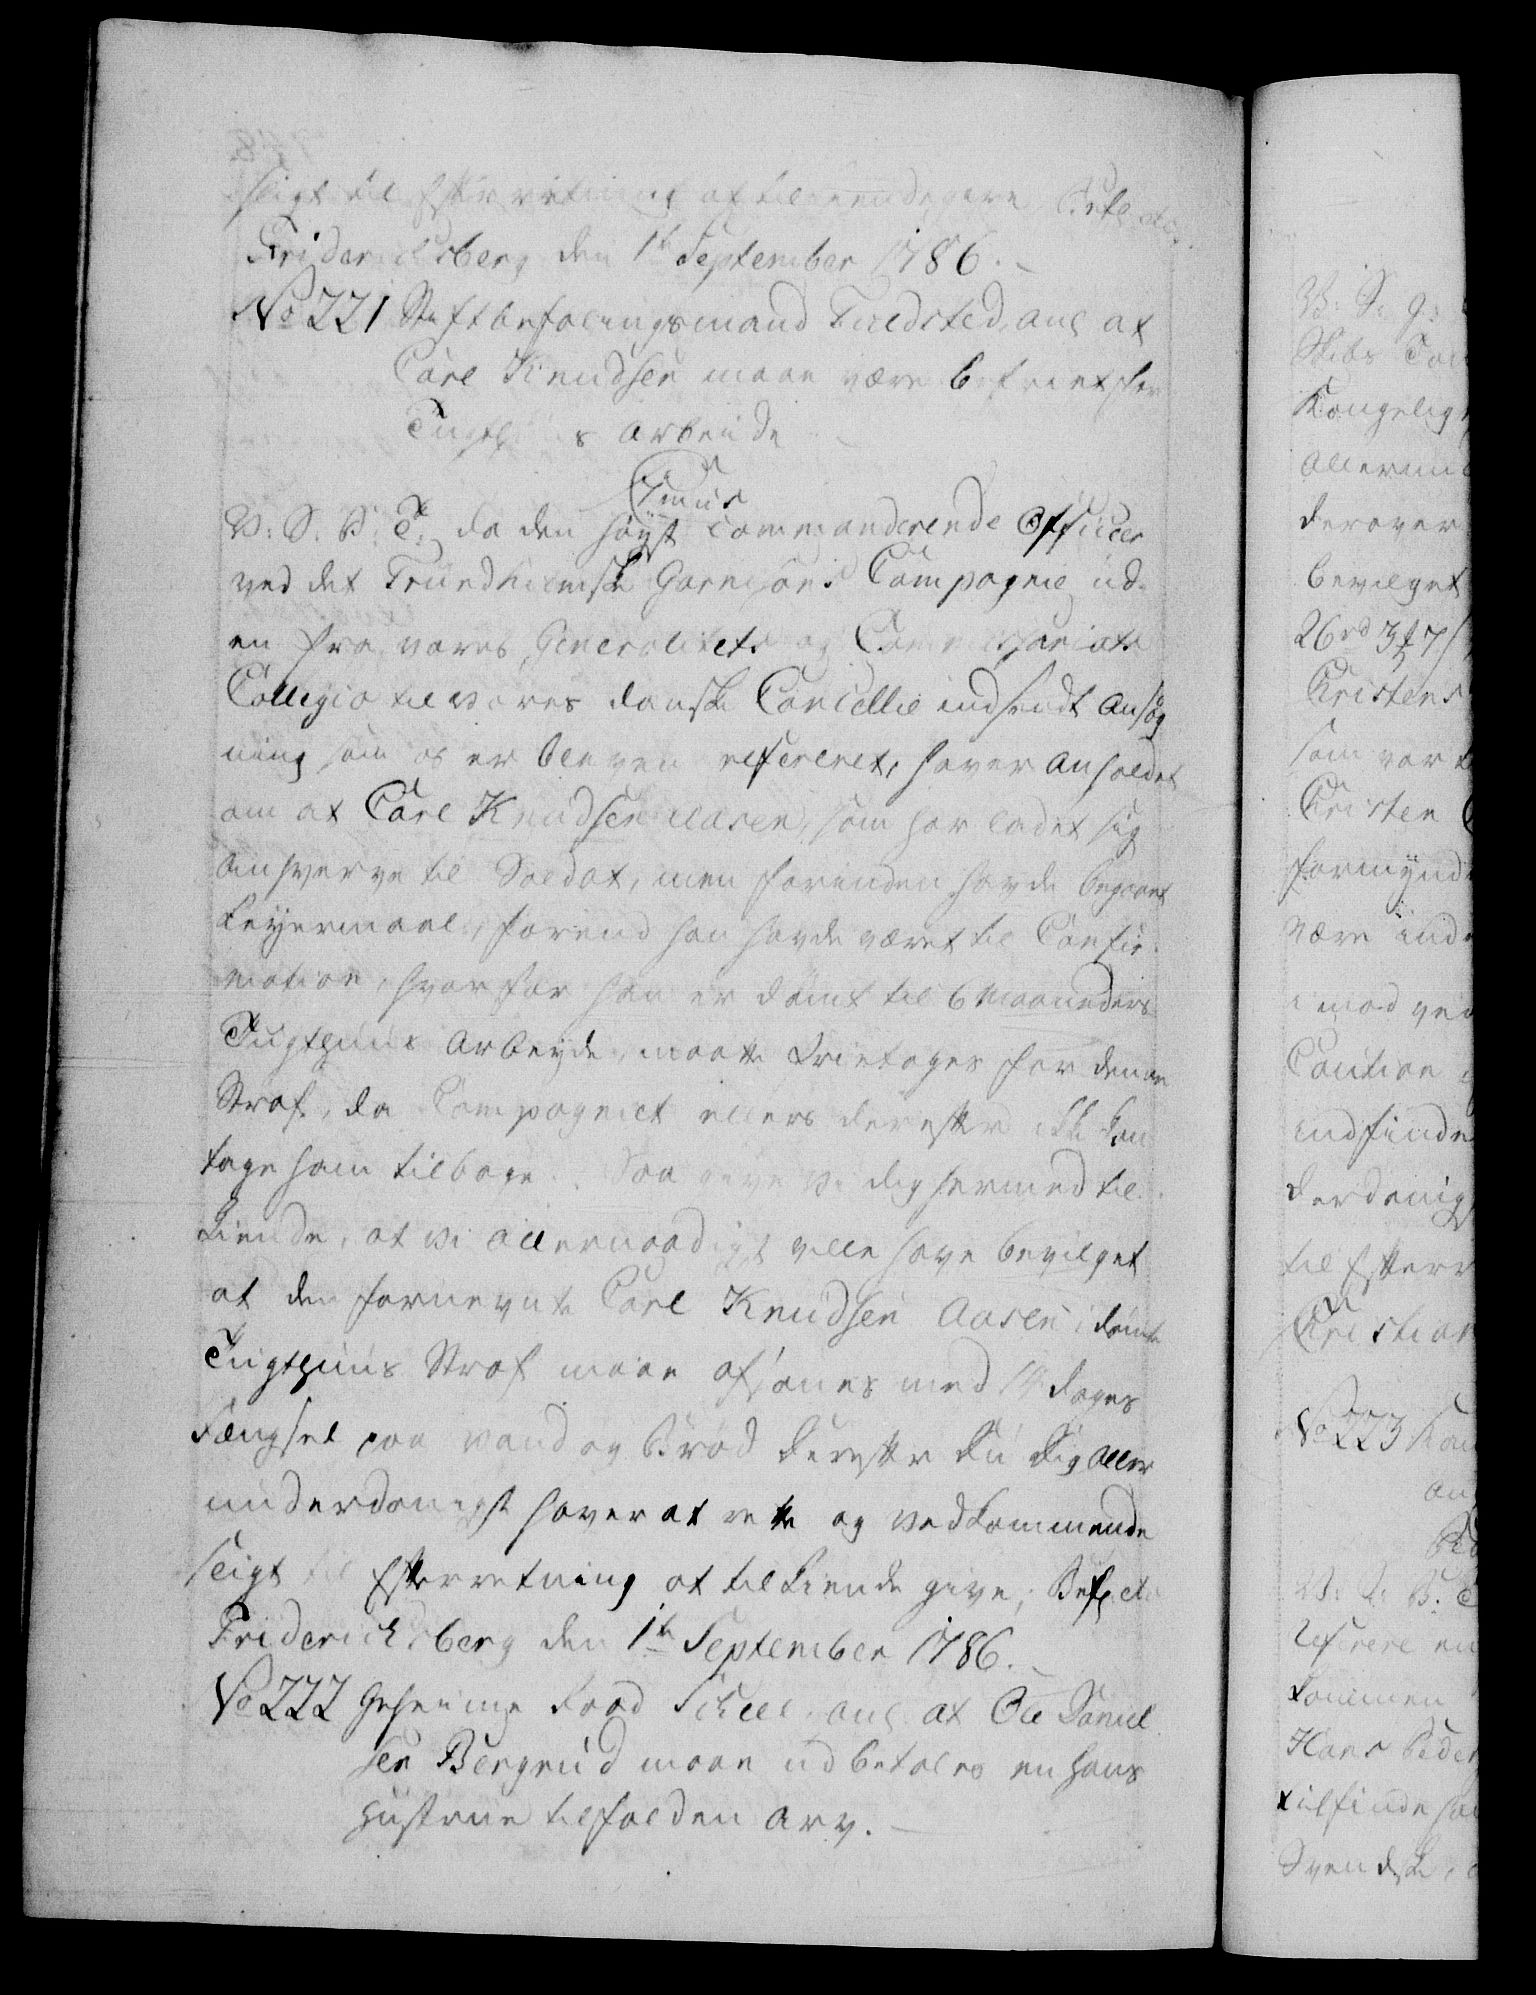 seigt til Efterretning at tilkiendegive Befal etc.
Friderichsberg den 1te September 1786.
No 221 Stiftbefalingsmand Feddersted, anl at
Carl Knudsen maae være befriet for
Tugthuus Arbeide
C7mus
V: S: P: T: da den høyst commanderende Officer
ved det Trundhiemske Garnisons Compagnie ud-
en fra vores Generalitets og Commissariats
Collegio til vores danske Cancellie indsendt Ansøg
ning som os er bleven refereret, haver anholdet
om at Carl Knudsen Aasen, som har ladet sig
anhverve til Soldat, men forinden havde begaaet
Leyermaal, forend han havde været til Confir-
mation, hvorfor han er dømt til 6 Maaneders
Tugthuus Arbeyde, maatte fritages for denne
Straf, da Compagniet ellers derefter ikke kan
tage ham tilbage. Saa give Vi dig hermed til
kiende, at Vi allernaadigst ville have bevilget
at den fornevnte Carl Knudsen Aasen idømte
Tugthuus Straf maae afsones med 14 dages
Fængsel paa Vand og Brød Derefter Du Dig aller
underdanigst haver at rette og vedkommende
seigt til Efterretning at tilkiende give; Bef etc
Friderichsberg den 1te September 1786.
No 222 Geheime Raad Scheel, anl at Ole Daniel
sen Bergrud maae udbetales en hans
Hustrue tilfalden Arv.
V: S: G:
Skibs
Kongelig
Allerun
derover
bevilget
26rd 3 7
Cristens
som var
Cristen
formynd
være ind
imod ved
Caution
indfinde
derdanigs
til Efterr
Cristian
No 223
an
V: S: P: T
Refere
kommen
Hans Peder
tilfinde
Svendske,